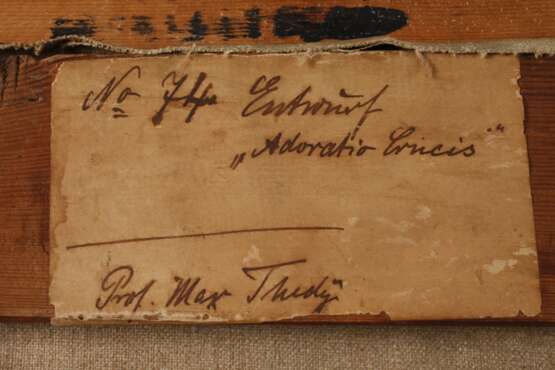 No 74 Entwurf
„Adoratio Crucis“
Prof. Max Thedÿ